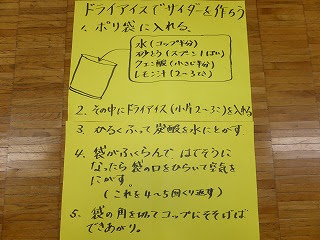 ドライアイスでサイダーを作ろう
1. ポリ袋に入れる。
水(コップ半分)
砂とう(スプーン1ぱい)
クエン酸(小さじ半分)
レモン汁(2~3てき)
2. その中にドライアイス(小片2~3こ)を入れる
3. かるくふって炭酸を水にとかす
4. 袋がふくらんで、はでそうに
なったら袋の口をひらいて空気を
にがす。
(これを4~5回くり返す)
5. 袋の角を切ってコップにそそげば
できあがり。